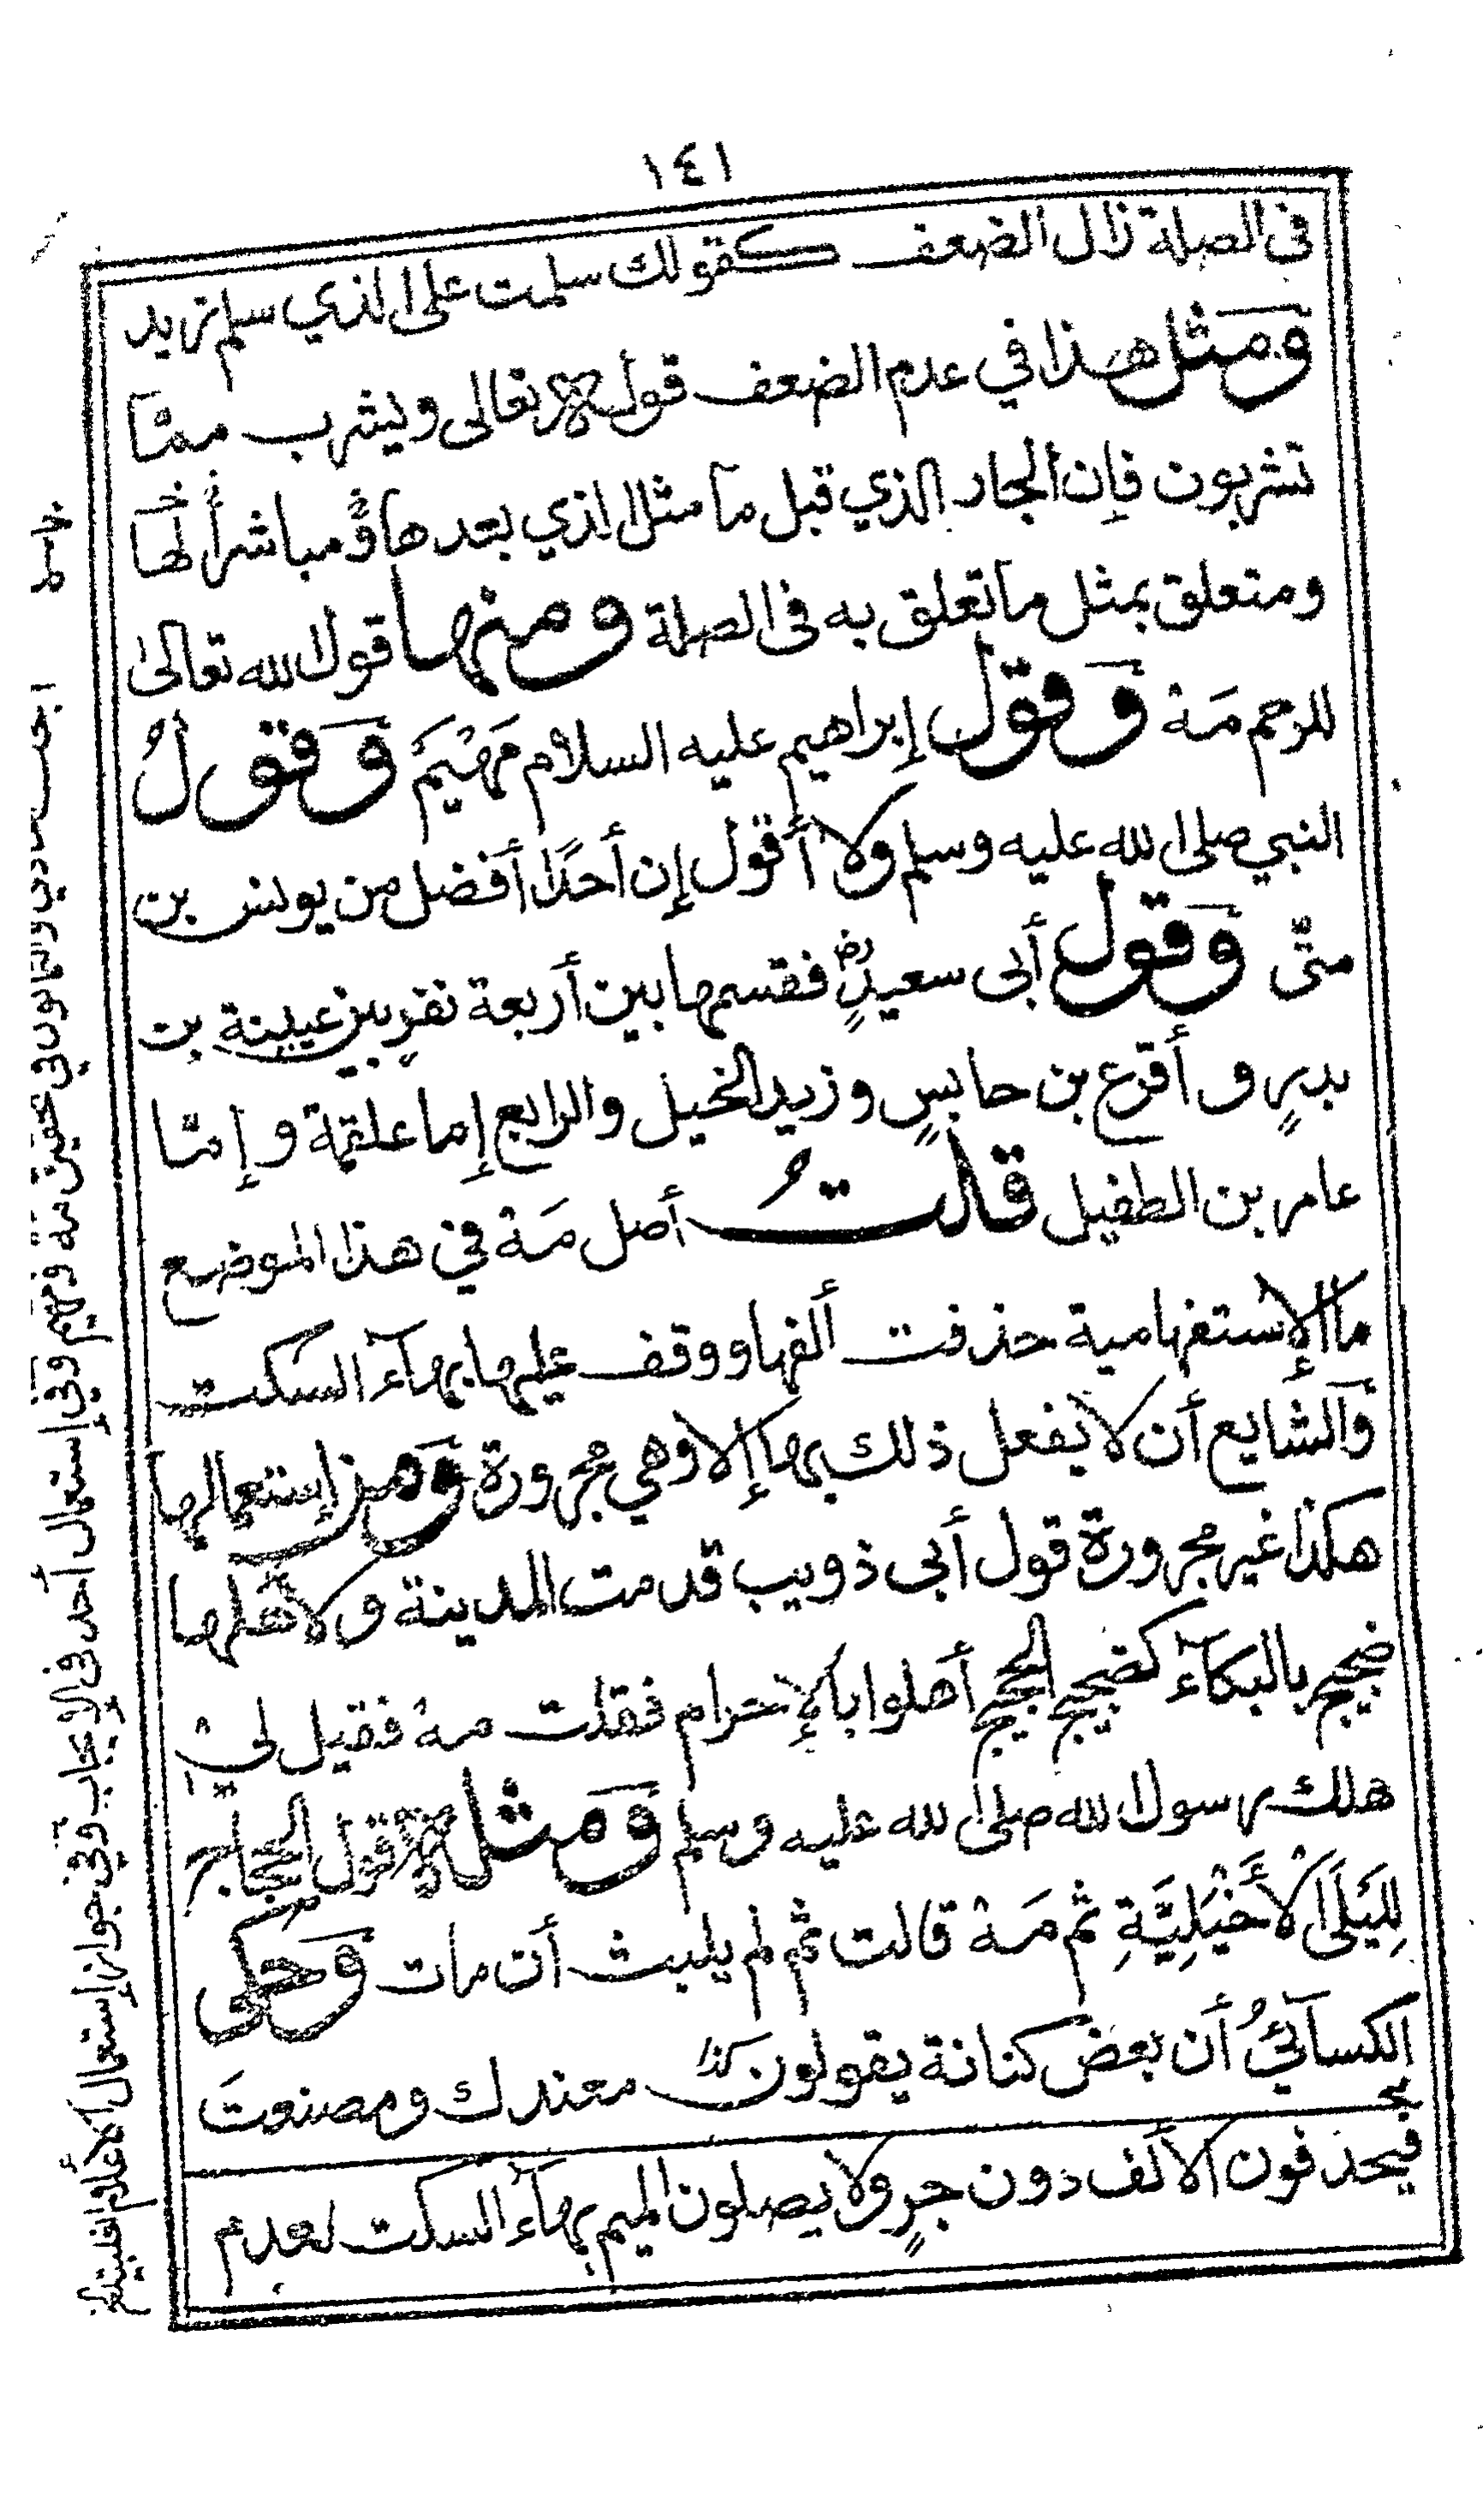 ١٤١
فى الصلة زال الضعف كقولك سلمت على الذي سلم زيد
وَمثل هذا في عدم الضعف قوله تعالى ويشرب ممّا
تشربون فإن الجار الذي قبل ما مثل الذي بعدها وًمباشراً لها
ومتعلق بمثل ما تعلق به فى الصلة ومنها قول الله تعالى
للرحم مَهْ وَقول إبراهيم عليه السلام مَهْيَمْ وَقولُ
النبي صلى الله عليه وسلم ولا أقول إن أحدًا أفضل من يونس بن
متّى وَقول أبى سعيدٍ رض فقسمها بين أربعة نفرٍ بين عيينة بن
بدرٍ و أقرع بن حابسٍ وزيد الخيل والرابع إما علقمة وإمّا
عامر بن الطفيل قلتُ أصل مَهْ في هذا الموضع
ما الإستفهامية حذفت ألفها ووقف عليها بهآء السكت
وآلشايع أن لا يفعل ذلك بها إلا وهي مجرورة وَمن إستعمالها
هكذا غير مجرورة قول أبى ذويب قدمت المدينة ولأهلها
ضجيج بالبكآء كضجيج الحجيج أهلوا بالإحرام فقلت مه فقيل لي
هلك رسول الله صلى الله عليه وسلم وَمثله قول الحجاج
لِلَيْلَى الأَخْيَلِيَّةِ ثم مَهْ قالت ثم لم يلبث أن مات وَحكى
الكسآئيُ أن بعض كنانة يقولون معندك ومصنعتَ
فيحذفون الألف دون جرٍ ولا يصلون الميم بهآء السكت لعدم